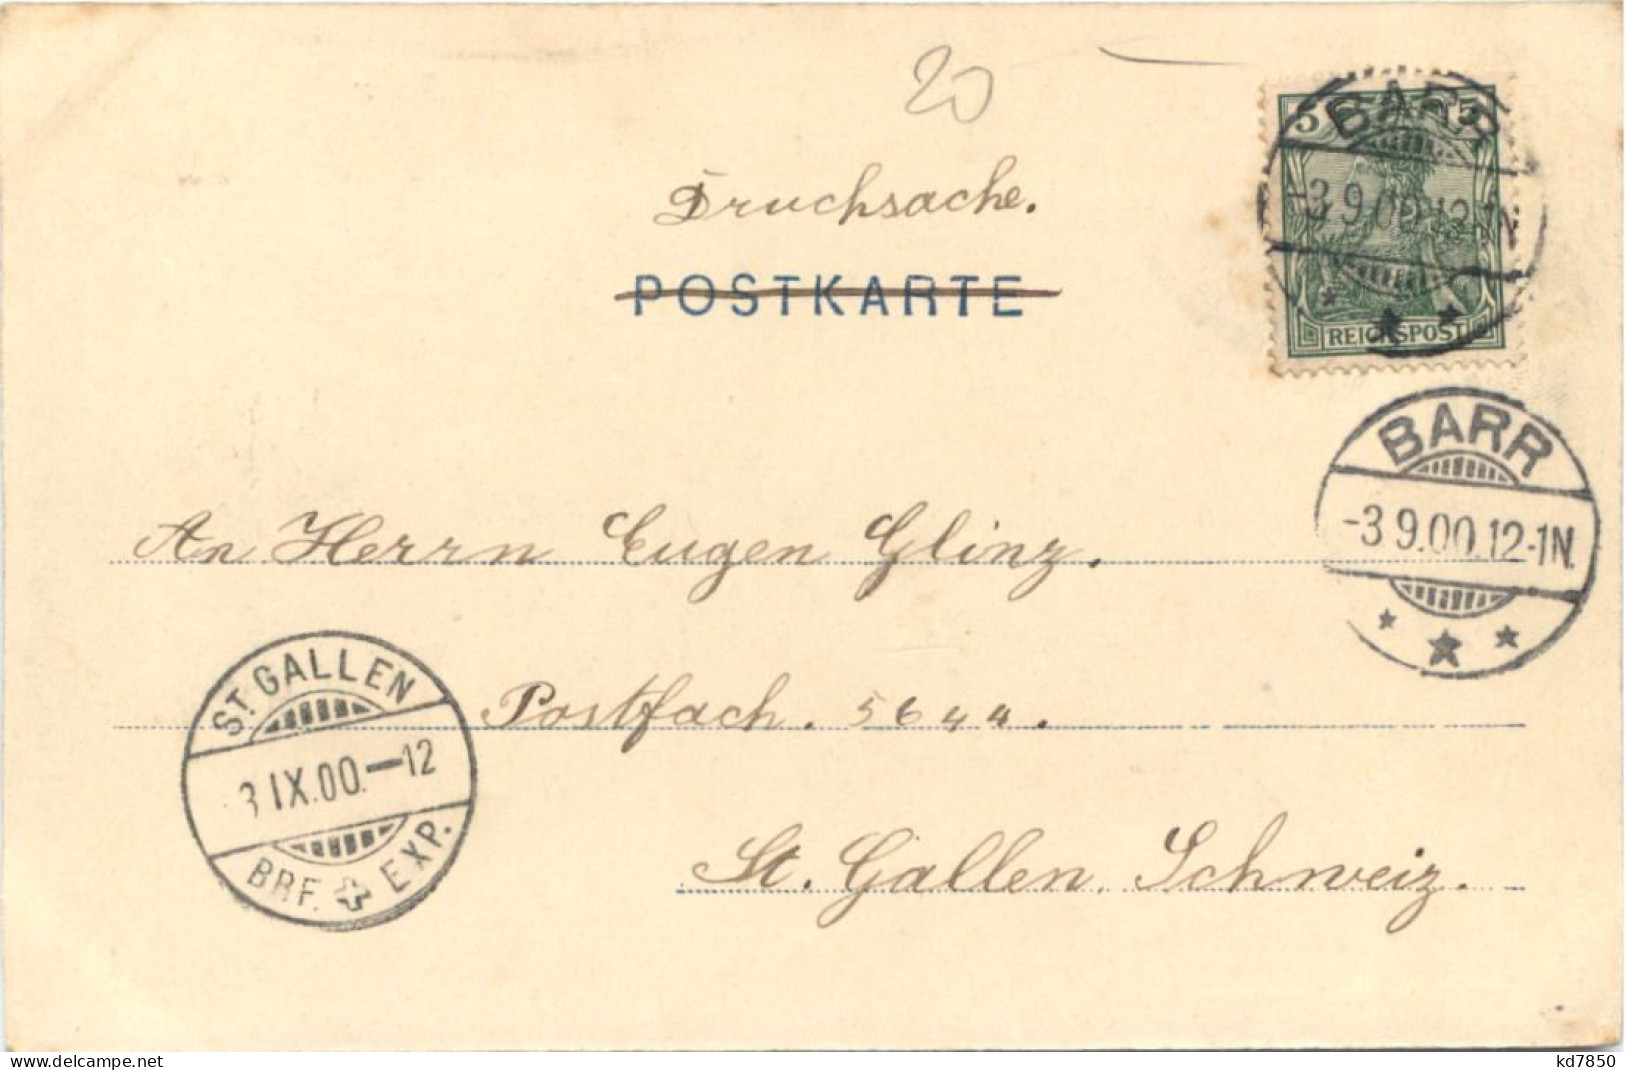 20
Drucksache.
POSTKARTE
5 5
REICHSPOST
BARR
-3.9.00.12-1N.
BARR
-3.9.00.12-1N.
An Herrn Eugen Glinz.
Postfach. 5644.
St. Gallen. Schweiz.
ST. GALLEN
3 IX.00.–12
BRF. EXP.
www.delcampe.net
kd7850